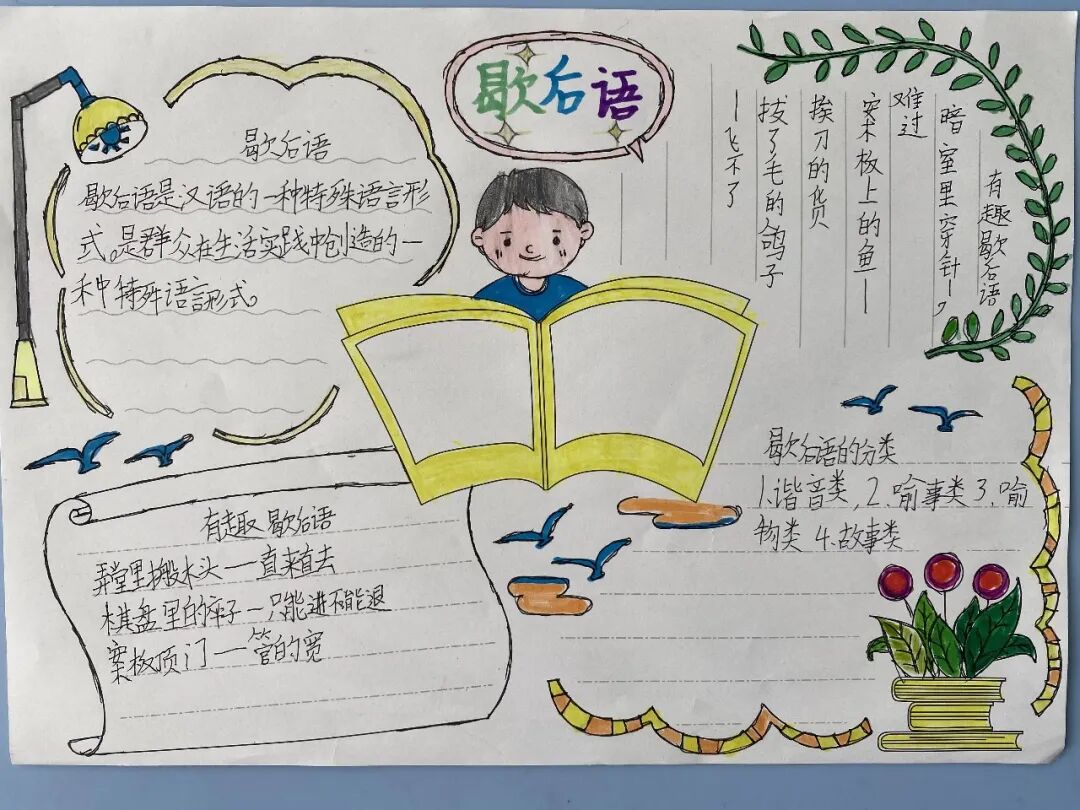 歇后语
歇后语
歇后语是汉语的一种特殊语言形
式。是群众在生活实践中创造的一
种特殊语言形式。
有趣歇后语
暗室里穿针一,
难过
案板上的鱼一
挨刀的货
拔了毛的鸽子
一飞不了
有趣歇后语
弄堂里搬木头一直来直去
棋盘里的卒子一只能进不能退
案板顶门一管的宽
歇后语的分类
1.谐音类,2.喻事类3.喻
物类4.故事类